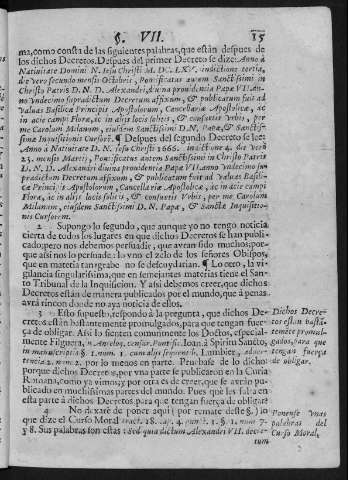 §. VII. 15
ma, como consta de las siguientes palabras, que están despues de
los dichos Decretos. Despues del primer Decreto se dize: Anno à
Natiuitate Domini N. Iesu Christi M. DC. LXV. indictione tertia,
die vero secundo mensis Octobris, Pontificatus autem Sanctissimi in
Christo Patris D. N. D. Alexandri, diuina prouidencia Papæ VII. An-
no Vndecimo supradictum Decretum affixum, & publicatum fuit ad
Valuas Basilicæ Principis Apostolorum, Cancellariæ Apostolicæ, ac
in acie campi Floræ, ac in alijs locis solitis, & consuetis Vrbis, per
me Carolum Milanum, eiusdem Sanctissimi D. N. Papæ, & Sanctiss-
simæ Inquisitionis Cursore. ¶ Despues del segundo Decreto se lee:
Anno à Natiuitate D. N. Iesu Christi 1666. indictione 4. die verò
23. mensis Martij, Pontificatus autem Sanctissimi in Christo Patris
D. N. D. Alexandri diuina prouidentia Papæ VII. anno Vndecimo su-
pradictum Decretum affixum, & publicatum fuit ad Valuas Basili-
cæ Principis Apostolorum, Cancellariæ Apostolicæ, ac in acie campi
Floræ, ac in alijs locis solitis, & consuetis Vrbis, per me Carolum
Milanum, eiusdem Sanctissimi D. N. Papæ, & Sanctæ Inquisitio-
nis Cursorem.
2 Supongo lo segundo, que aunque yo no tengo noticia
cierta de todos los lugares en que dichos Decretos se han publi-
cado; pero nos debemos persuadir, que avràn sido muchos; por-
que assi nos lo persuade: lo vno el zelo de los señores Obispos,
que en materia tan graue no se descuydarian. ¶ Lo otro, la vi-
gilancia singularissima, que en semejantes materias tiene el San-
to Tribunal de la Inquisicion. Y assi debemos creer, que dichos
Decretos están de manera publicados por el mundo, que à penas
avrà rincon donde no aya noticia de ellos.
3 Esto supuesto, respondo à la pregunta, que dichos De-
cretos están bastantemente promulgados, para que tengan fuer-
ça de obligar. Assi lo sienten comunmente los Doctos, especial-
mente Filguera, Ioan. à Spiritu Sancto,
in manuscriptis §. 1. num. 1. cum alijs
num. 2. por lo menos en parte. Prueba se de lo dicho:
porque dichos Decretos, por vna parte se publicaron en la Curia
Romana, como ya vimos; y por otra es de creer, que se avràn pu-
blicado en muchissimas partes del mundo. Pues què les falta en
esta parte à dichos Decretos, para que tengan fuerça de obligar?
Dichos Decre-
tos están bastã-
temente promul-
gados, para que
tengan fuerça
de obligar.
4 No dexarè de poner aqui (por remate deste §.) lo
que dize el Curso Moral tract. 18. cap. 4. punct. 1. §. 1. num. 7.
y 8. Sus palabras son estas: Sed quia dictum Alexandri VII. decre-
tum
Ponense vnas
palabras del
Curso Moral.